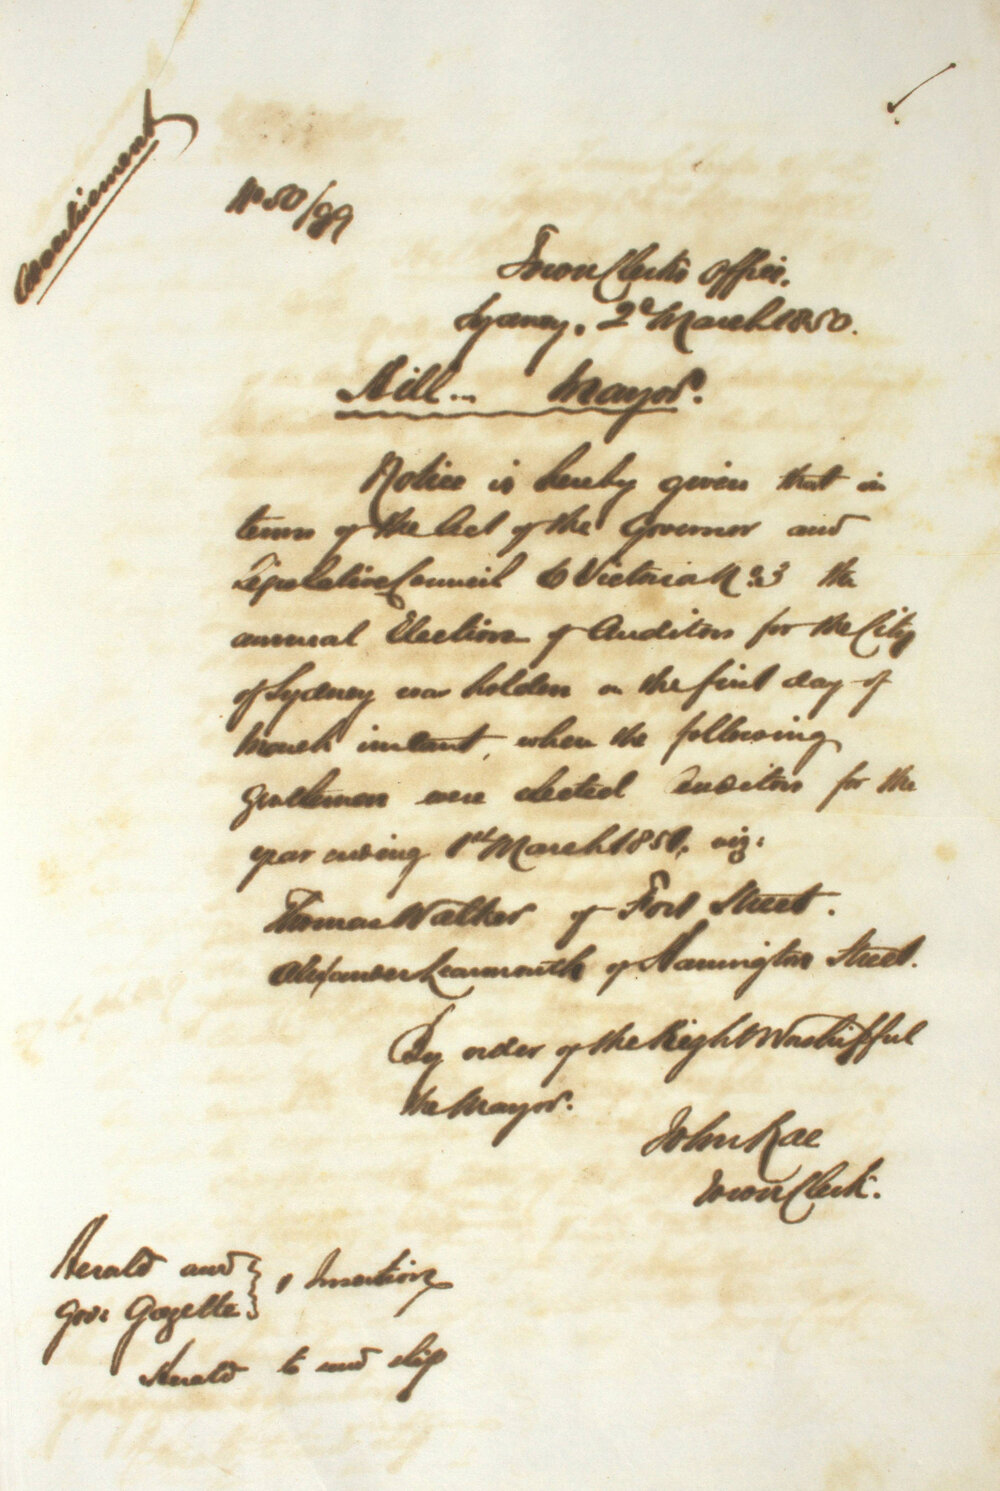 Advertisement
No 50/89
Town Clerk's Office.
Sydney, 2d March 1850.
Hill... Mayor.
Notice is hereby given that in
terms of the Act of the Governor and
Legislative Council 6 Victoria No 3 the
annual Election of Auditors for the City
of Sydney was holden on the first day of
March instant, when the following
gentlemen were elected Auditors for the
year ending 1st March 1851, viz:
Thomas Walker of Fort Street.
Alexander Learmonth of Harrington Street.
By order of the Right Worshipful
the Mayor.
John Rae
Town Clerk.
Herald and
Govt Gazette } 1 Insertion
Herald to send slip